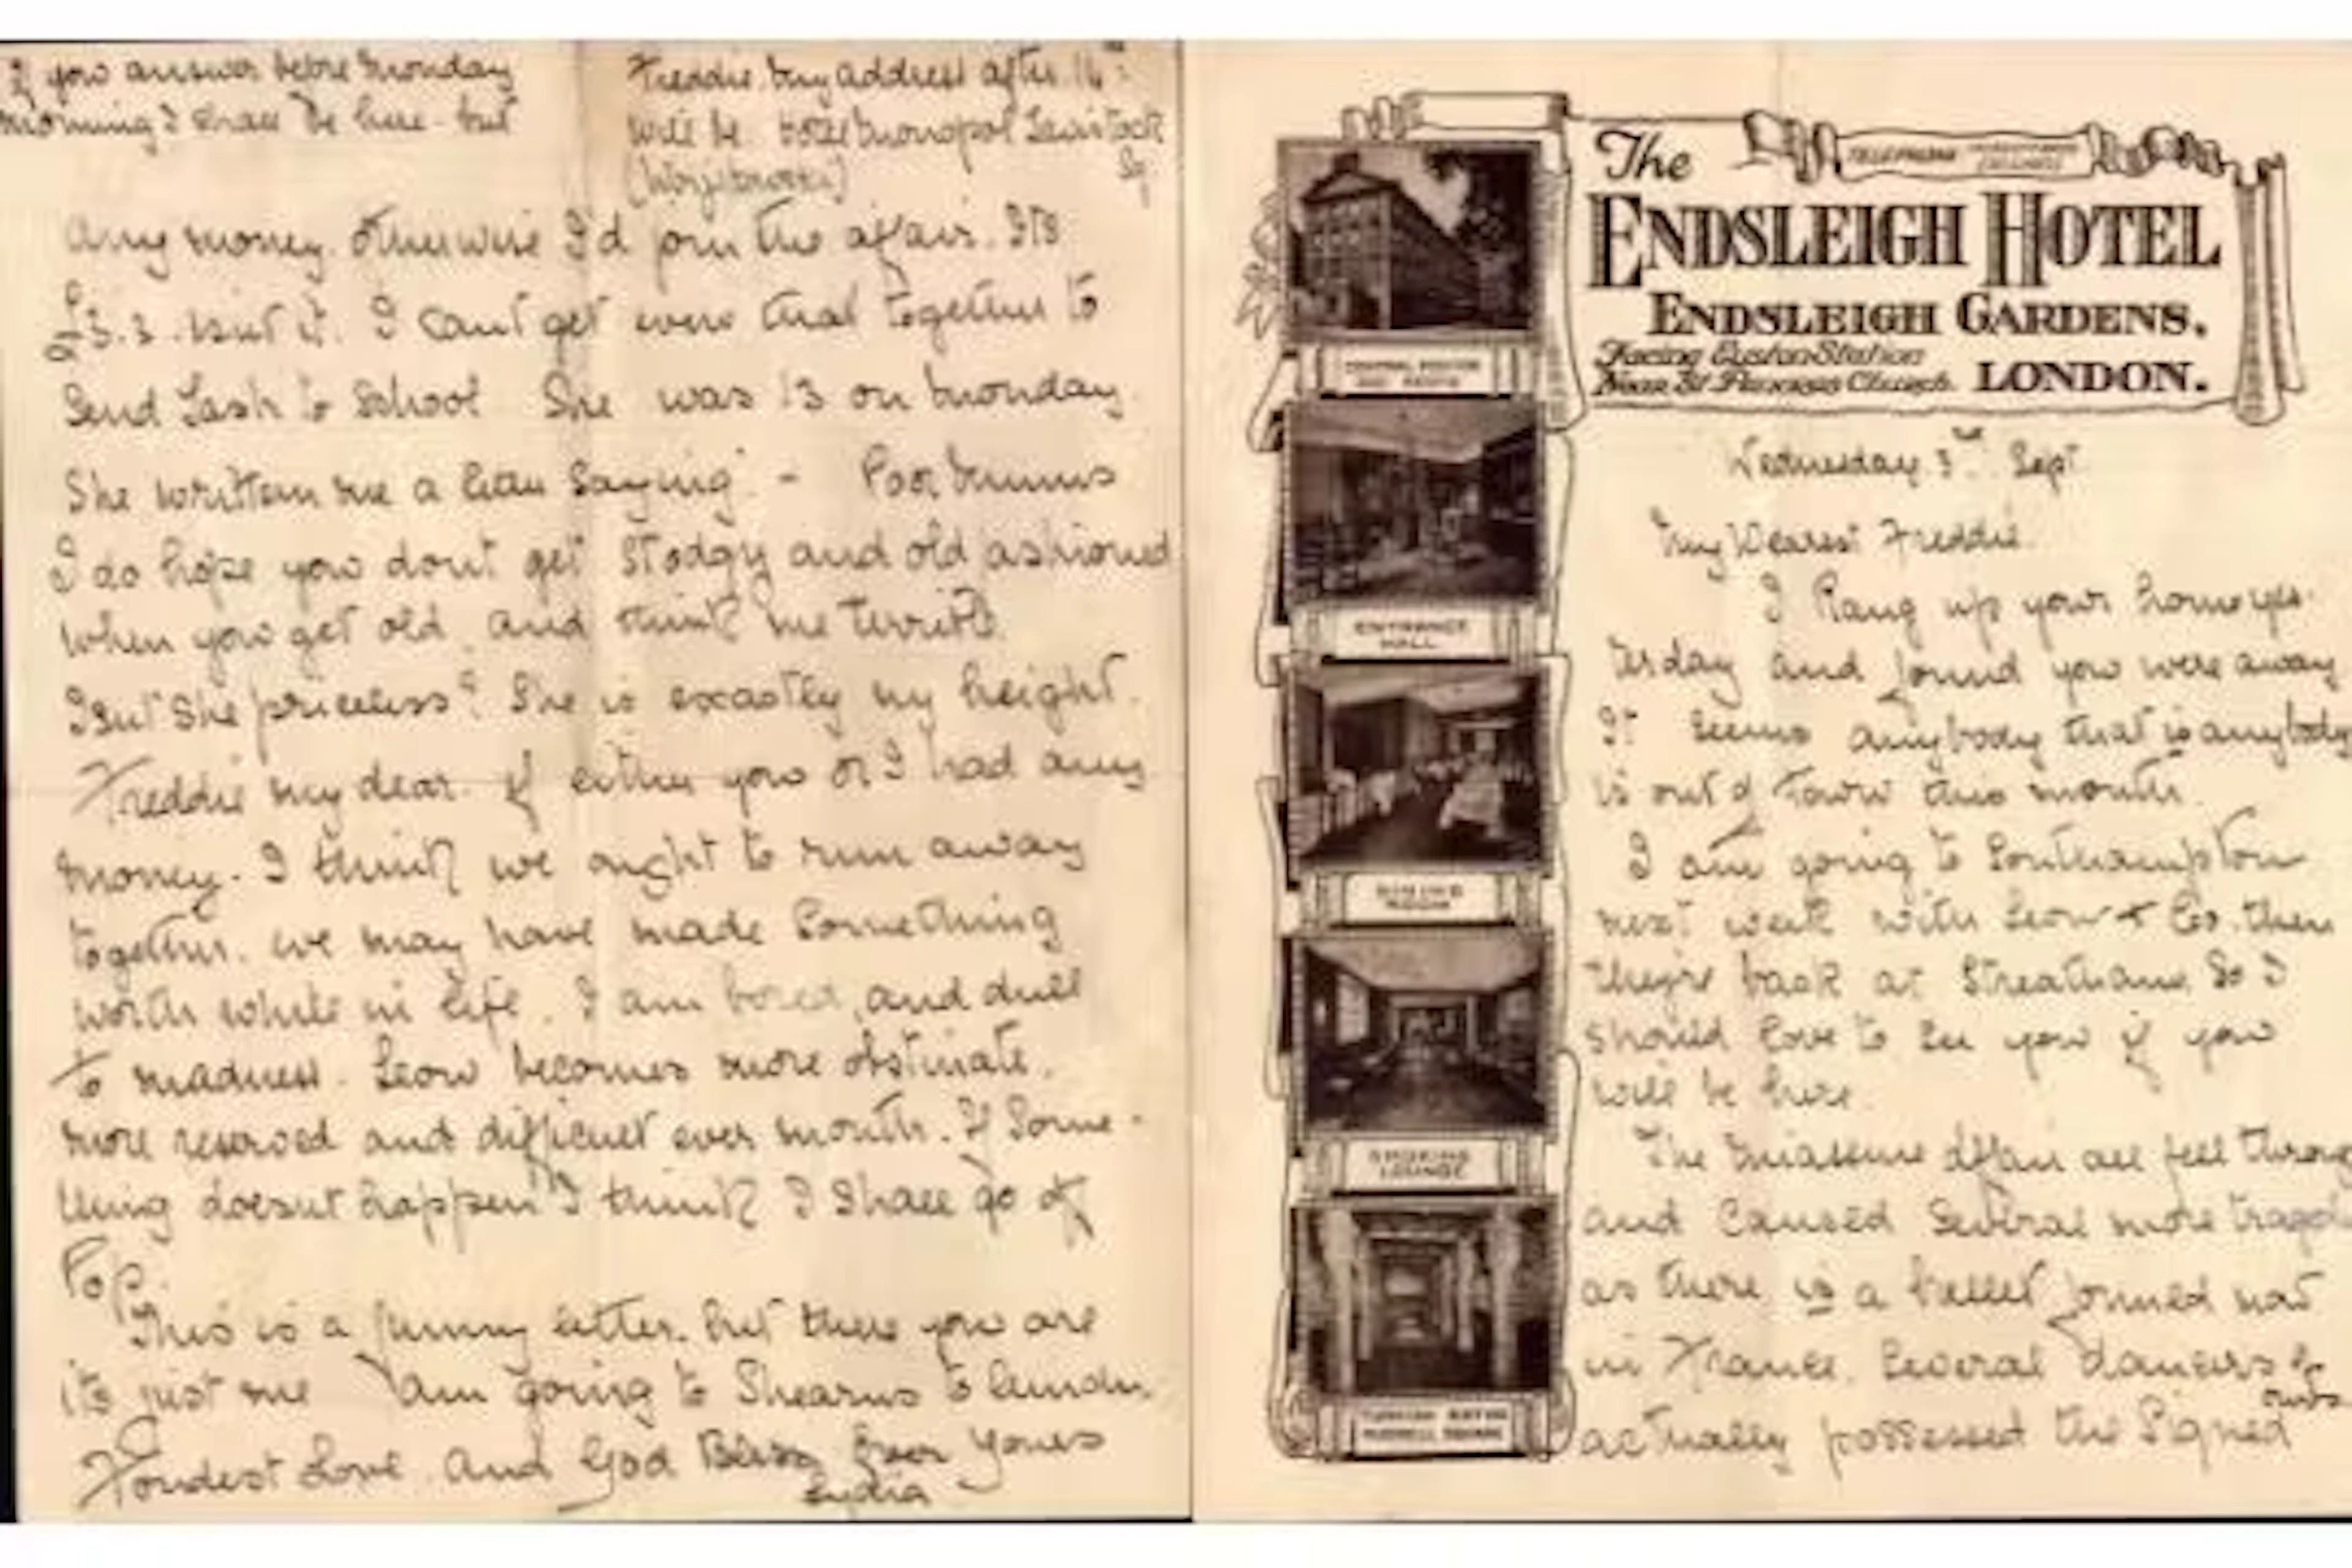 If you answer before Monday
morning I shall be here - but
Freddie. my address after 14th
will be Hotel Monopol Tavistock
Sq
any money. otherwise I'd join the affair. Its
£3.3. isnt it. I cant get even that together to
Send Tash to School She was 13 on Monday.
She written me a letter saying - Poor Mums
I do hope you dont get stodgy and old ashioned
when you get old. and think me terrible
Isnt she priceless? She is exactly my height.
Freddie my dear. if either you or I had any
money. I think we ought to run away
together. we may have made something
worth while in life. I am bored, and dull
to madness. Leon becomes more obstinate.
more reserved and difficult ever month. If Some-
thing doesnt happen I think I shall go off
Pop.
This is a funny letter. but there you are
its just me I am going to Shearns to lunch.
Fondest Love. and God Bless from yours
Lydia
The
ENDSLEIGH HOTEL
ENDSLEIGH GARDENS.
Facing Euston Station
Near St Pancras Church. LONDON.
TELEPHONE
ENTRANCE
HALL
DINING
ROOM
SMOKING
LOUNGE
TURKISH BATHS
RUSSELL SQUARE
Wednesday 3rd Sept
My Dearest Freddie.
I Rang up your home yes-
terday and found you were away
It seems anybody that is anybody
is out of town this month.
I am going to Southampton
next week with Leon & Co. then
they're back at Streatham. So I
should love to see you if you
will be here.
The Massine affair all fell throug
and caused several more traged
as there is a ballet formed now
in France. Several dancers
actually possessed the signed